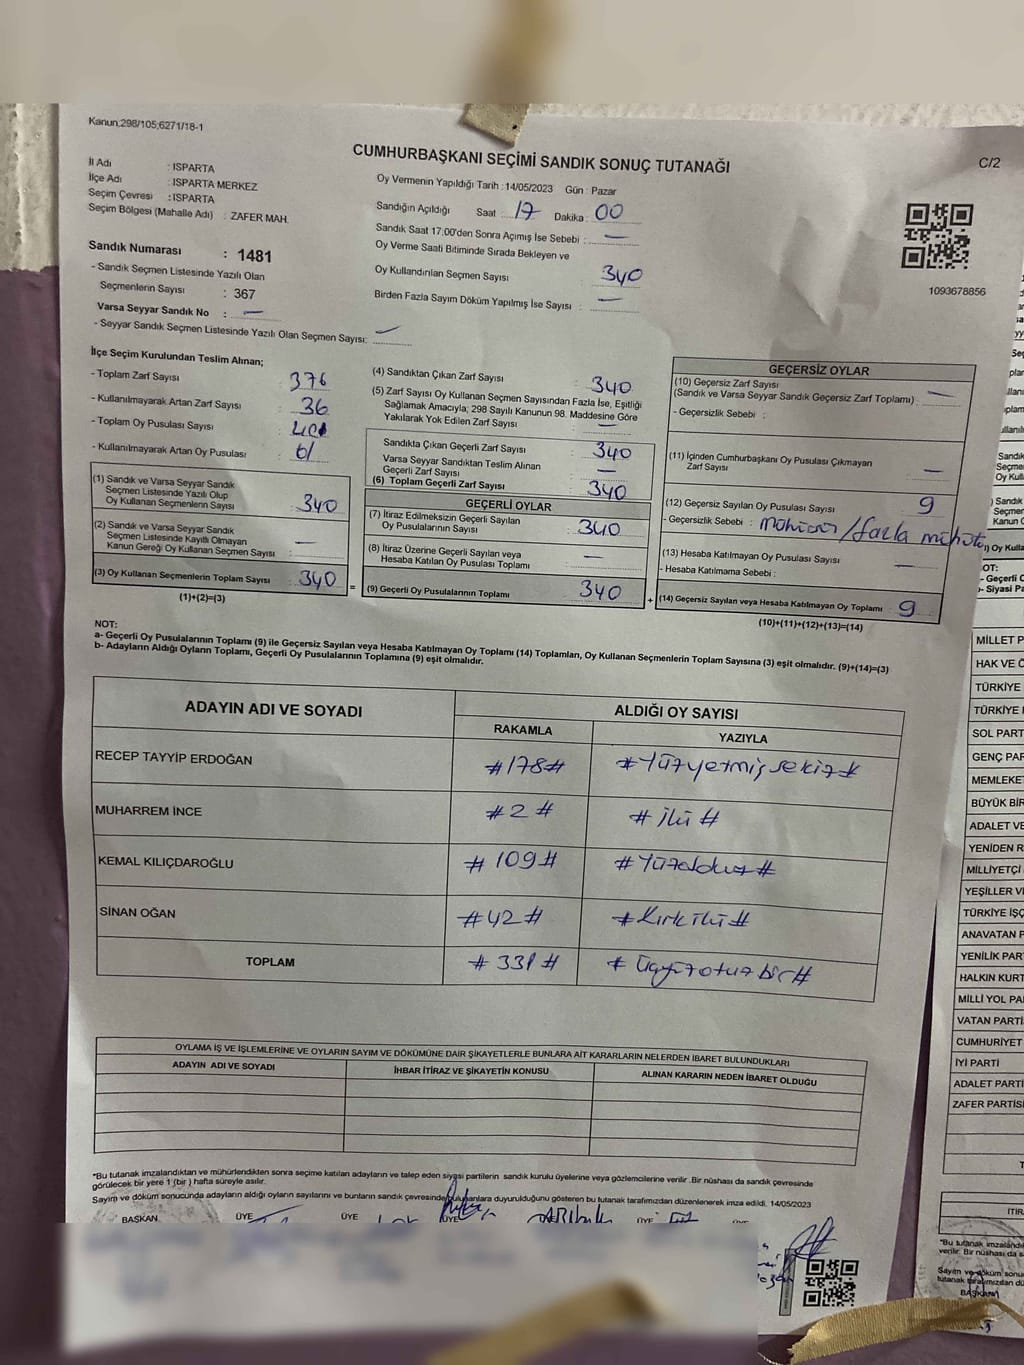 Kanun:298/105;6271/18-1
CUMHURBAŞKANI SEÇİMİ SANDIK SONUÇ TUTANAĞI
C/2
İl Adı : ISPARTA
İlçe Adı : ISPARTA MERKEZ
Seçim Çevresi : ISPARTA
Seçim Bölgesi (Mahalle Adı) : ZAFER MAH.
Sandık Numarası : 1481
- Sandık Seçmen Listesinde Yazılı Olan
Seçmenlerin Sayısı : 367
Varsa Seyyar Sandık No : —
- Seyyar Sandık Seçmen Listesinde Yazılı Olan Seçmen Sayısı: —
Oy Vermenin Yapıldığı Tarih : 14/05/2023 Gün : Pazar
Sandığın Açıldığı Saat 17 Dakika : 00
Sandık Saat 17:00'den Sonra Açımış İse Sebebi : —
Oy Verme Saati Bitiminde Sırada Bekleyen ve
Oy Kullandırılan Seçmen Sayısı 340
Birden Fazla Sayım Döküm Yapılmış İse Sayısı : —
1093678856
İlçe Seçim Kurulundan Teslim Alınan;
- Toplam Zarf Sayısı : 376
- Kullanılmayarak Artan Zarf Sayısı : 36
- Toplam Oy Pusulası Sayısı :
- Kullanılmayarak Artan Oy Pusulası : 61
(1) Sandık ve Varsa Seyyar Sandık
Seçmen Listesinde Yazılı Olup
Oy Kullanan Seçmenlerin Sayısı : 340
(2) Sandık ve Varsa Seyyar Sandık
Seçmen Listesinde Kayıtlı Olmayan
Kanun Gereği Oy Kullanan Seçmen Sayısı : —
(3) Oy Kullanan Seçmenlerin Toplam Sayısı : 340
(1)+(2)=(3)
(4) Sandıktan Çıkan Zarf Sayısı : 340
(5) Zarf Sayısı Oy Kullanan Seçmen Sayısından Fazla İse, Eşitliği
Sağlamak Amacıyla; 298 Sayılı Kanunun 98. Maddesine Göre
Yakılarak Yok Edilen Zarf Sayısı : —
Sandıkta Çıkan Geçerli Zarf Sayısı : 340
Varsa Seyyar Sandıktan Teslim Alınan
Geçerli Zarf Sayısı : —
(6) Toplam Geçerli Zarf Sayısı : 340
GEÇERLİ OYLAR
(7) İtiraz Edilmeksizin Geçerli Sayılan
Oy Pusulalarının Sayısı : 340
(8) İtiraz Üzerine Geçerli Sayılan veya
Hesaba Katılan Oy Pusulası Toplamı : —
= (9) Geçerli Oy Pusulalarının Toplamı : 340
GEÇERSİZ OYLAR
(10) Geçersiz Zarf Sayısı
(Sandık ve Varsa Seyyar Sandık Geçersiz Zarf Toplamı) : —
- Geçersizlik Sebebi :
(11) İçinden Cumhurbaşkanı Oy Pusulası Çıkmayan
Zarf Sayısı : —
(12) Geçersiz Sayılan Oy Pusulası Sayısı : 9
- Geçersizlik Sebebi : /fazla
(13) Hesaba Katılmayan Oy Pusulası Sayısı : —
- Hesaba Katılmama Sebebi :
+ (14) Geçersiz Sayılan veya Hesaba Katılmayan Oy Toplamı : 9
(10)+(11)+(12)+(13)=(14)
NOT:
a- Geçerli Oy Pusulalarının Toplamı (9) ile Geçersiz Sayılan veya Hesaba Katılmayan Oy Toplamı (14) Toplamları, Oy Kullanan Seçmenlerin Toplam Sayısına (3) eşit olmalıdır. (9)+(14)=(3)
b- Adayların Aldığı Oyların Toplamı, Geçerli Oy Pusulalarının Toplamına (9) eşit olmalıdır.
ADAYIN ADI VE SOYADI
ALDIĞI OY SAYISI
RAKAMLA YAZIYLA
RECEP TAYYİP ERDOĞAN #178# #Yüzyetmişsekiz#
MUHARREM İNCE #2# #iki#
KEMAL KILIÇDAROĞLU #109# #Yüzdokuz#
SİNAN OĞAN #42# #Kırkiki#
TOPLAM #331# #Üçyüzotuzbir#
OYLAMA İŞ VE İŞLEMLERİNE VE OYLARIN SAYIM VE DÖKÜMÜNE DAİR ŞİKAYETLERLE BUNLARA AİT KARARLARIN NELERDEN İBARET BULUNDUKLARI
ADAYIN ADI VE SOYADI İHBAR İTİRAZ VE ŞİKAYETİN KONUSU ALINAN KARARIN NEDEN İBARET OLDUĞU
*Bu tutanak imzalandıktan ve mühürlendikten sonra seçime katılan adayların ve talep eden siyasi partilerin sandık kurulu üyelerine veya gözlemcilerine verilir .Bir nüshası da sandık çevresinde
görülecek bir yere 1 (bir ) hafta süreyle asılır.
Sayım ve döküm sonucunda adayların aldığı oyların sayılarını ve bunların sandık çevresinde bulunanlara duyurulduğunu gösteren bu tutanak tarafımızdan düzenlenerek imza edildi. 14/05/2023
BAŞKAN ÜYE ÜYE ÜYE ÜYE
MİLLET P
HAK VE Ö
TÜRKİYE
TÜRKİYE
SOL PART
GENÇ PAR
MEMLEKE
BÜYÜK BİR
ADALET VE
YENİDEN R
MİLLİYETÇİ
YEŞİLLER V
TÜRKİYE İŞÇ
ANAVATAN P
YENİLİK PAR
HALKIN KURT
MİLLİ YOL PA
VATAN PARTİ
CUMHURİYET
İYİ PARTİ
ADALET PARTİ
ZAFER PARTİS